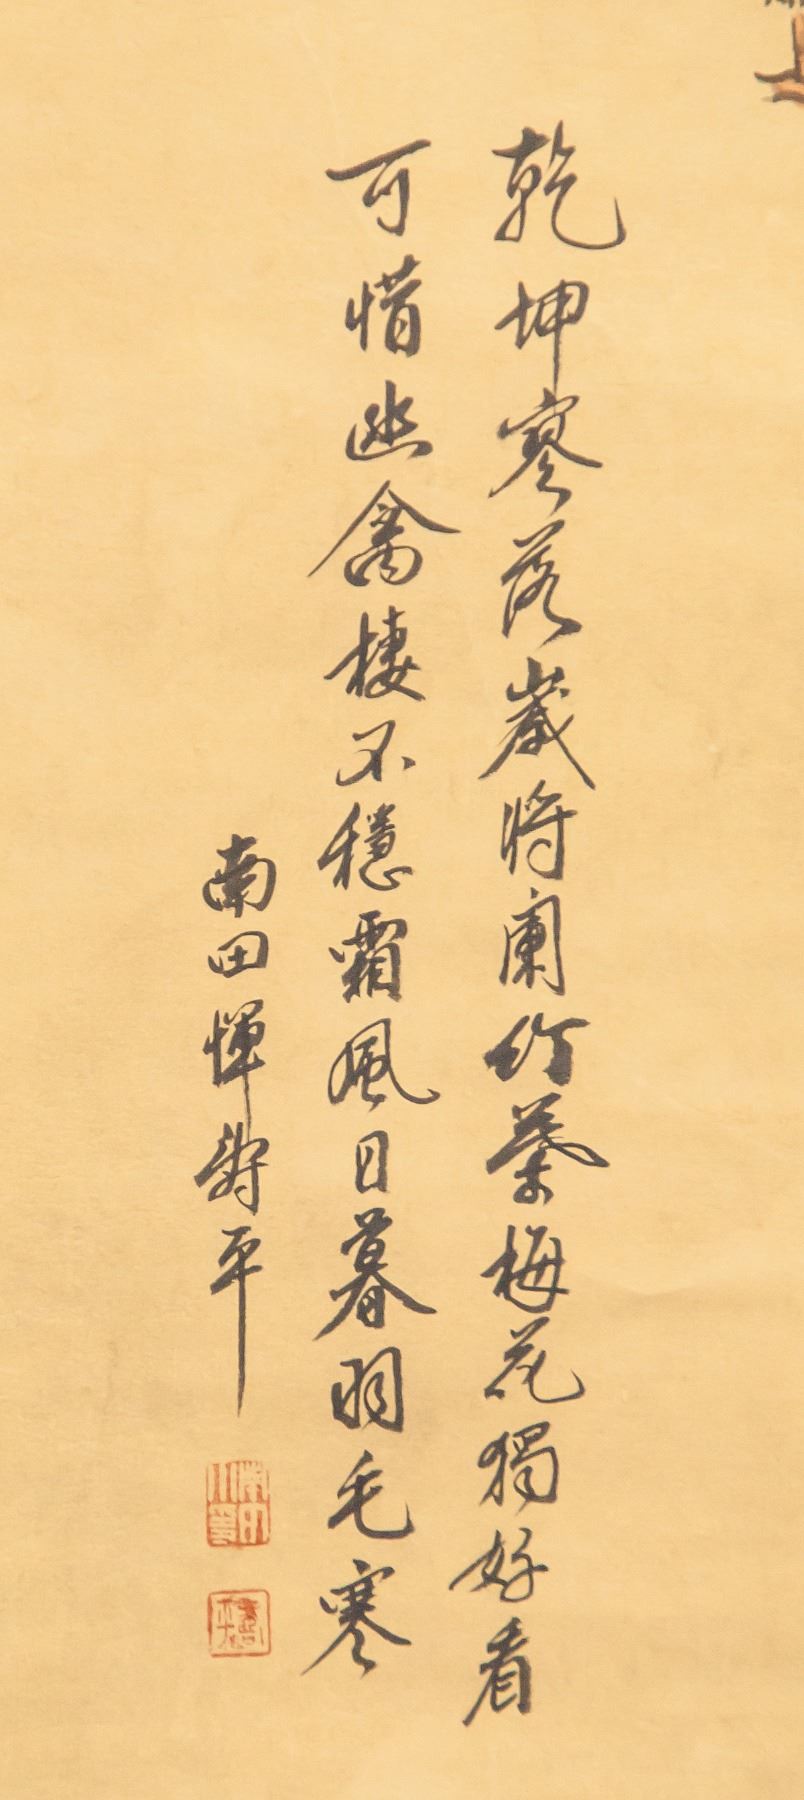 乾坤寥落歲將闌竹葉梅花獨好看
可惜幽禽棲不穩霜風日暮羽毛寒
南田惲壽平
壽平